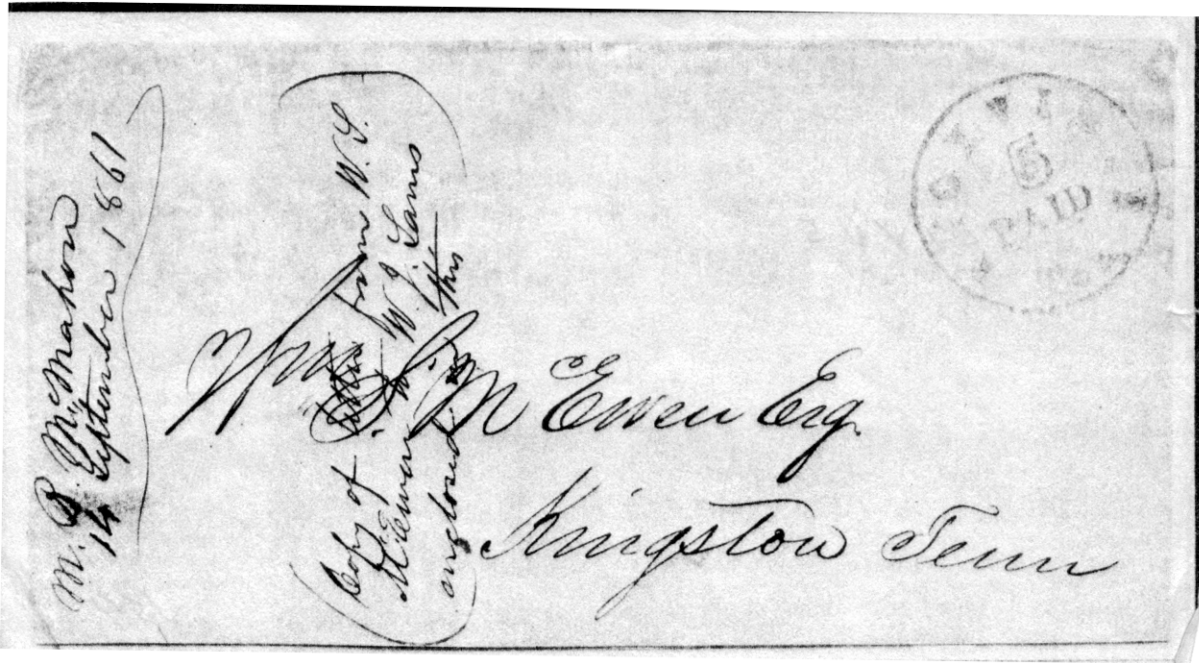 M. B. McMahon
14 September 1861
Copy of letter from W. S.
McEwen to W. J. Sams
enclosed in this
Wm. S. McEwen Esq.
Kingston Tenn
5
PAID